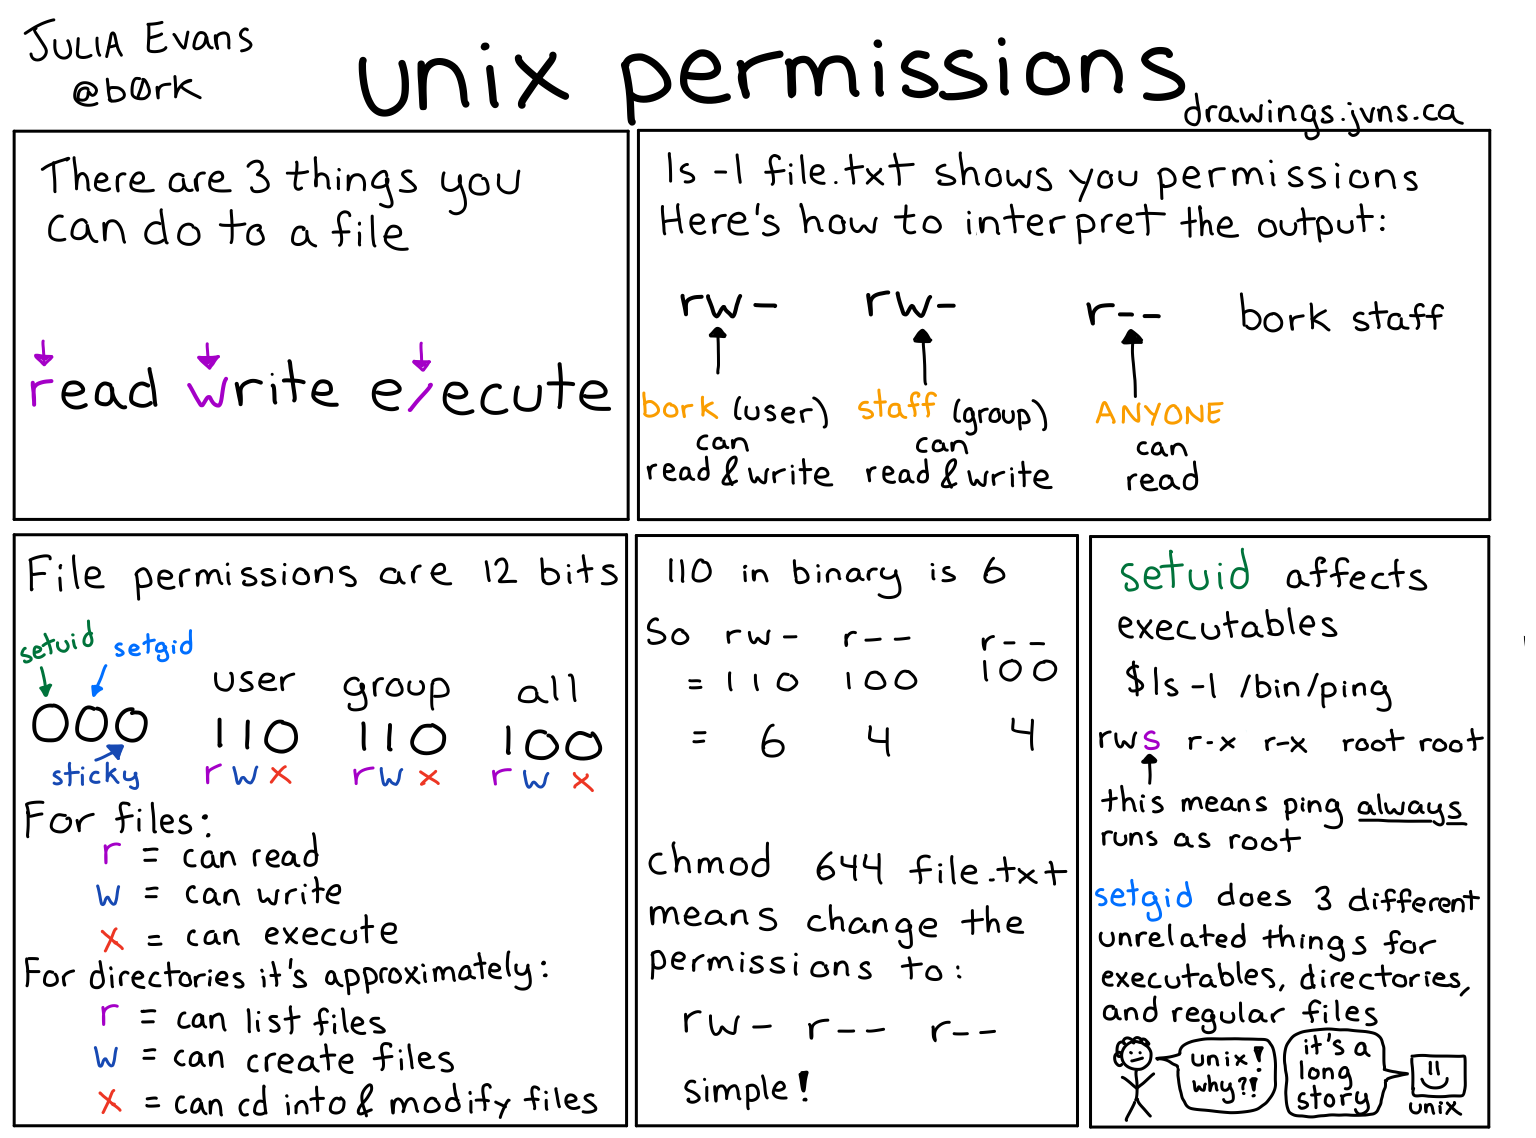 JULIA Evans
@b0rk
unix permissions
drawings.jvns.ca
There are 3 things you
can do to a file
read write execute
ls -l file.txt shows you permissions
Here's how to interpret the output:
rw- rw- r-- bork staff
bork (user) staff (group) ANYONE
can can can
read & write read & write read
File permissions are 12 bits
setuid setgid
user group all
000 110 110 100
sticky rwx rwx rwx
For files:
r = can read
w = can write
x = can execute
For directories it's approximately:
r = can list files
w = can create files
x = can cd into & modify files
110 in binary is 6
So rw- r-- r--
= 110 100 100
= 6 4 4
chmod 644 file.txt
means change the
permissions to:
rw- r-- r--
simple!
setuid affects
executables
$ls -l /bin/ping
rws r-x r-x root root
this means ping always
runs as root
setgid does 3 different
unrelated things for
executables, directories,
and regular files
unix!
why?!
it's a
long
story
unix